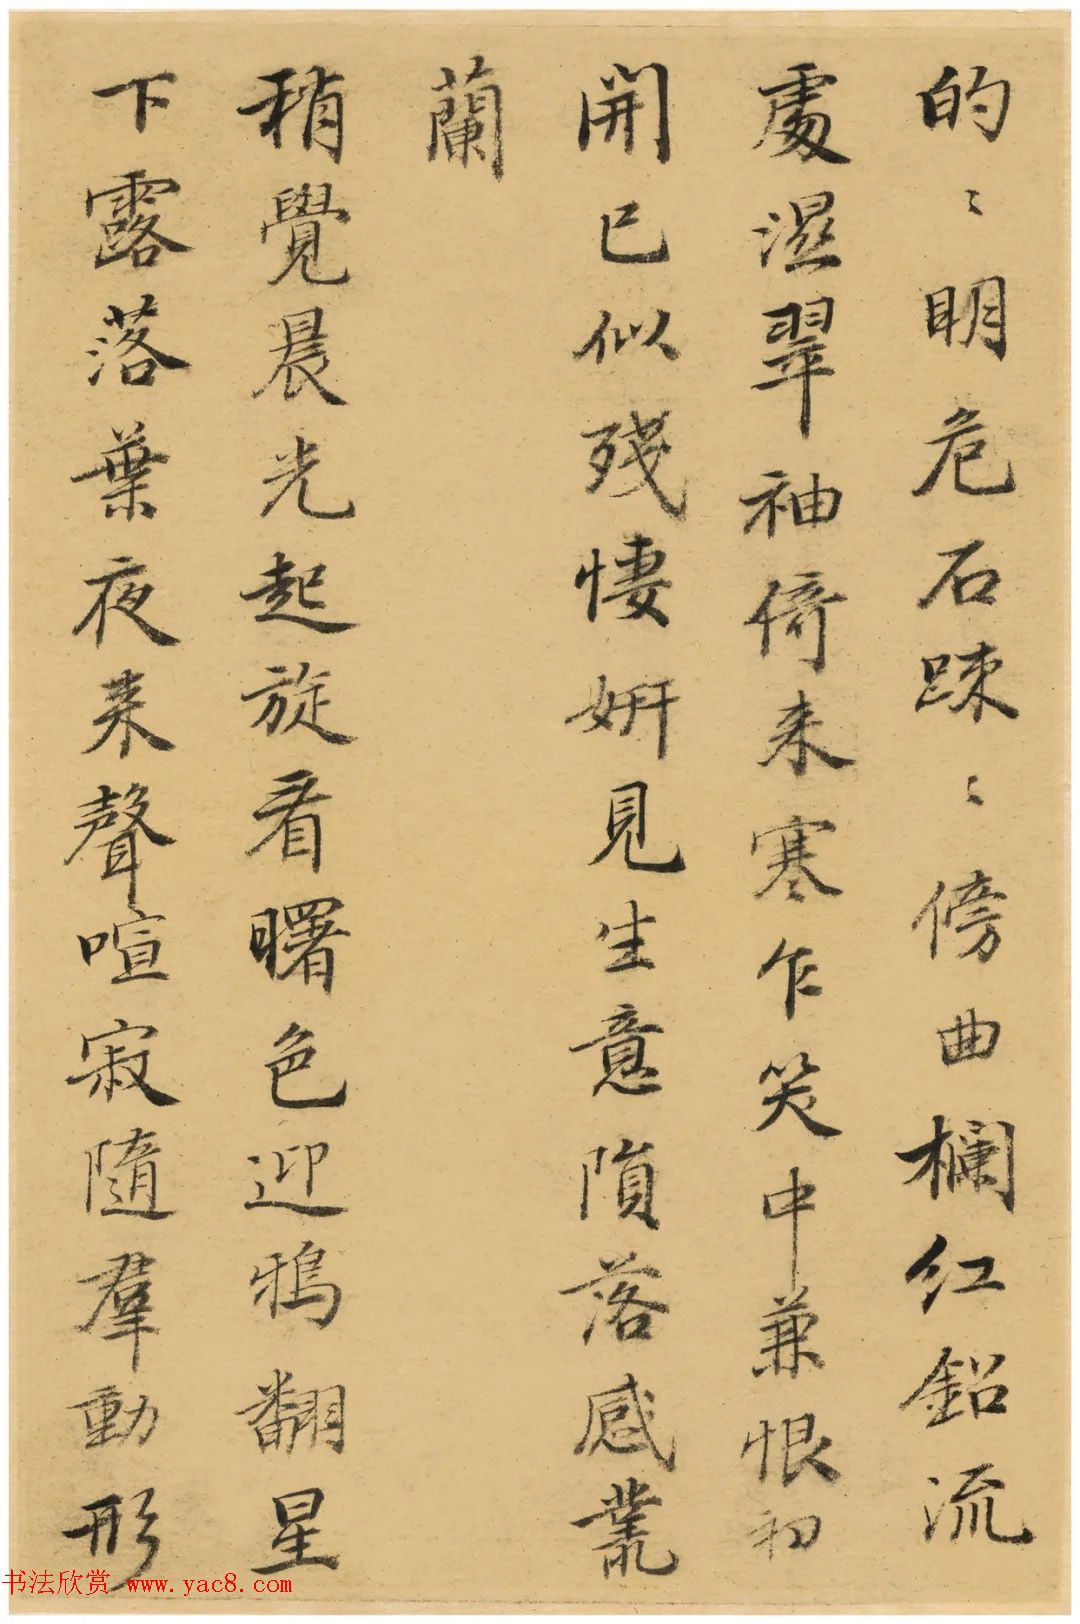 的〻明危石踈〻傍曲欄红鉛流
處濕翠袖倚来寒乍笑中兼恨初
開已似殘悽妍見生意隕落感叢
蘭
稍覺晨光起旋看曙色迎鴉翻星
下露落葉夜来聲喧寂隨羣動形
书法欣赏 www.yac8.com